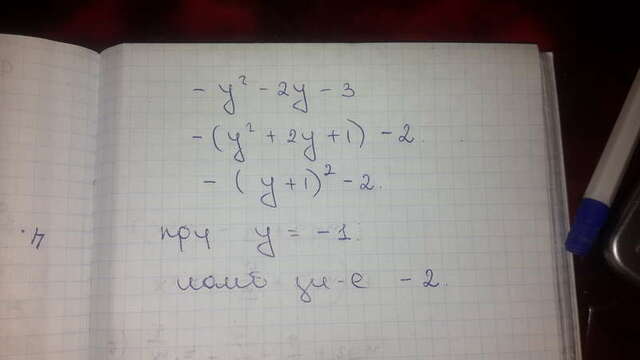 - y² - 2y - 3
- (y² + 2y + 1) - 2.
- (y+1)² - 2.
при y = -1
наиб зн-е - 2.